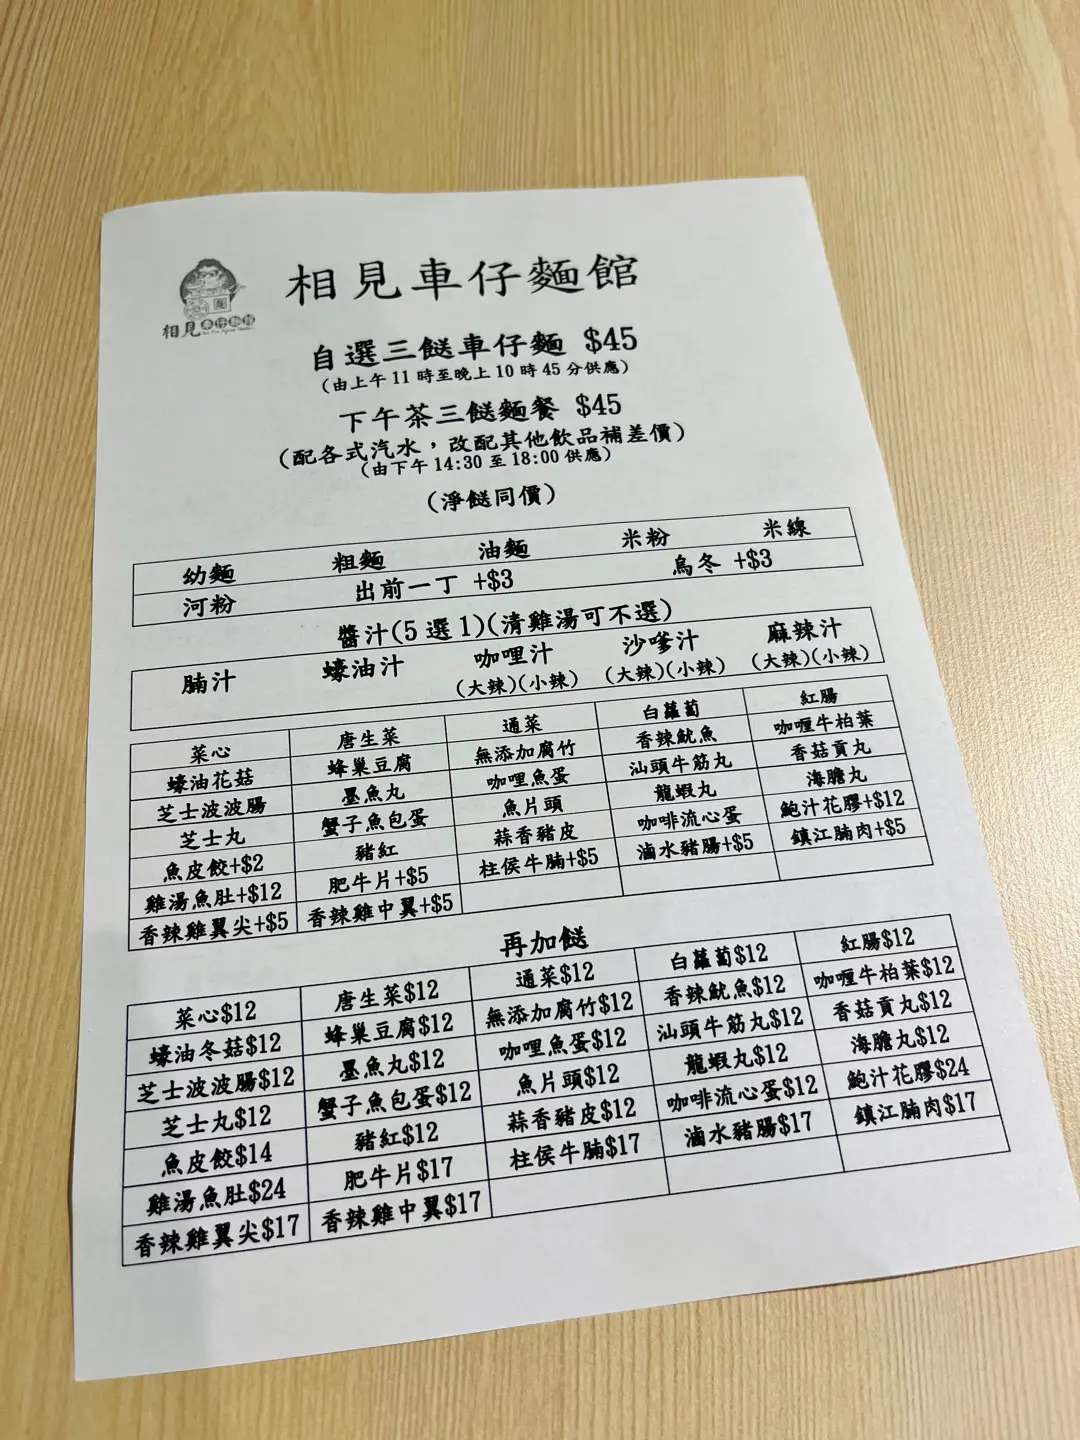 相見車仔麵館
相見車仔麵館
自選三餸車仔麵 $45
(由上午 11 時至晚上 10 時 45 分供應)
下午茶三餸麵餐 $45
(配各式汽水，改配其他飲品補差價)
(由下午 14:30 至 18:00 供應)
(淨餸同價)
幼麵 粗麵 油麵 米粉 米線
河粉 出前一丁 +$3 烏冬 +$3
醬汁(5 選 1)(清雞湯可不選)
腩汁 蠔油汁 咖哩汁 沙嗲汁 麻辣汁
(大辣)(小辣) (大辣)(小辣) (大辣)(小辣)
菜心 唐生菜 通菜 白蘿蔔 紅腸
蠔油花菇 蜂巢豆腐 無添加腐竹 香辣魷魚 咖喱牛柏葉
芝士波波腸 墨魚丸 咖哩魚蛋 汕頭牛筋丸 香菇貢丸
芝士丸 蟹子魚包蛋 魚片頭 龍蝦丸 海膽丸
魚皮餃+$2 豬紅 蒜香豬皮 咖啡流心蛋 鮑汁花膠+$12
雞湯魚肚+$12 肥牛片+$5 柱侯牛腩+$5 滷水豬腸+$5 鎮江腩肉+$5
香辣雞翼尖+$5 香辣雞中翼+$5
再加餸
菜心$12 唐生菜$12 通菜$12 白蘿蔔$12 紅腸$12
蠔油冬菇$12 蜂巢豆腐$12 無添加腐竹$12 香辣魷魚$12 咖喱牛柏葉$12
芝士波波腸$12 墨魚丸$12 咖哩魚蛋$12 汕頭牛筋丸$12 香菇貢丸$12
芝士丸$12 蟹子魚包蛋$12 魚片頭$12 龍蝦丸$12 海膽丸$12
魚皮餃$14 豬紅$12 蒜香豬皮$12 咖啡流心蛋$12 鮑汁花膠$24
雞湯魚肚$24 肥牛片$17 柱侯牛腩$17 滷水豬腸$17 鎮江腩肉$17
香辣雞翼尖$17 香辣雞中翼$17